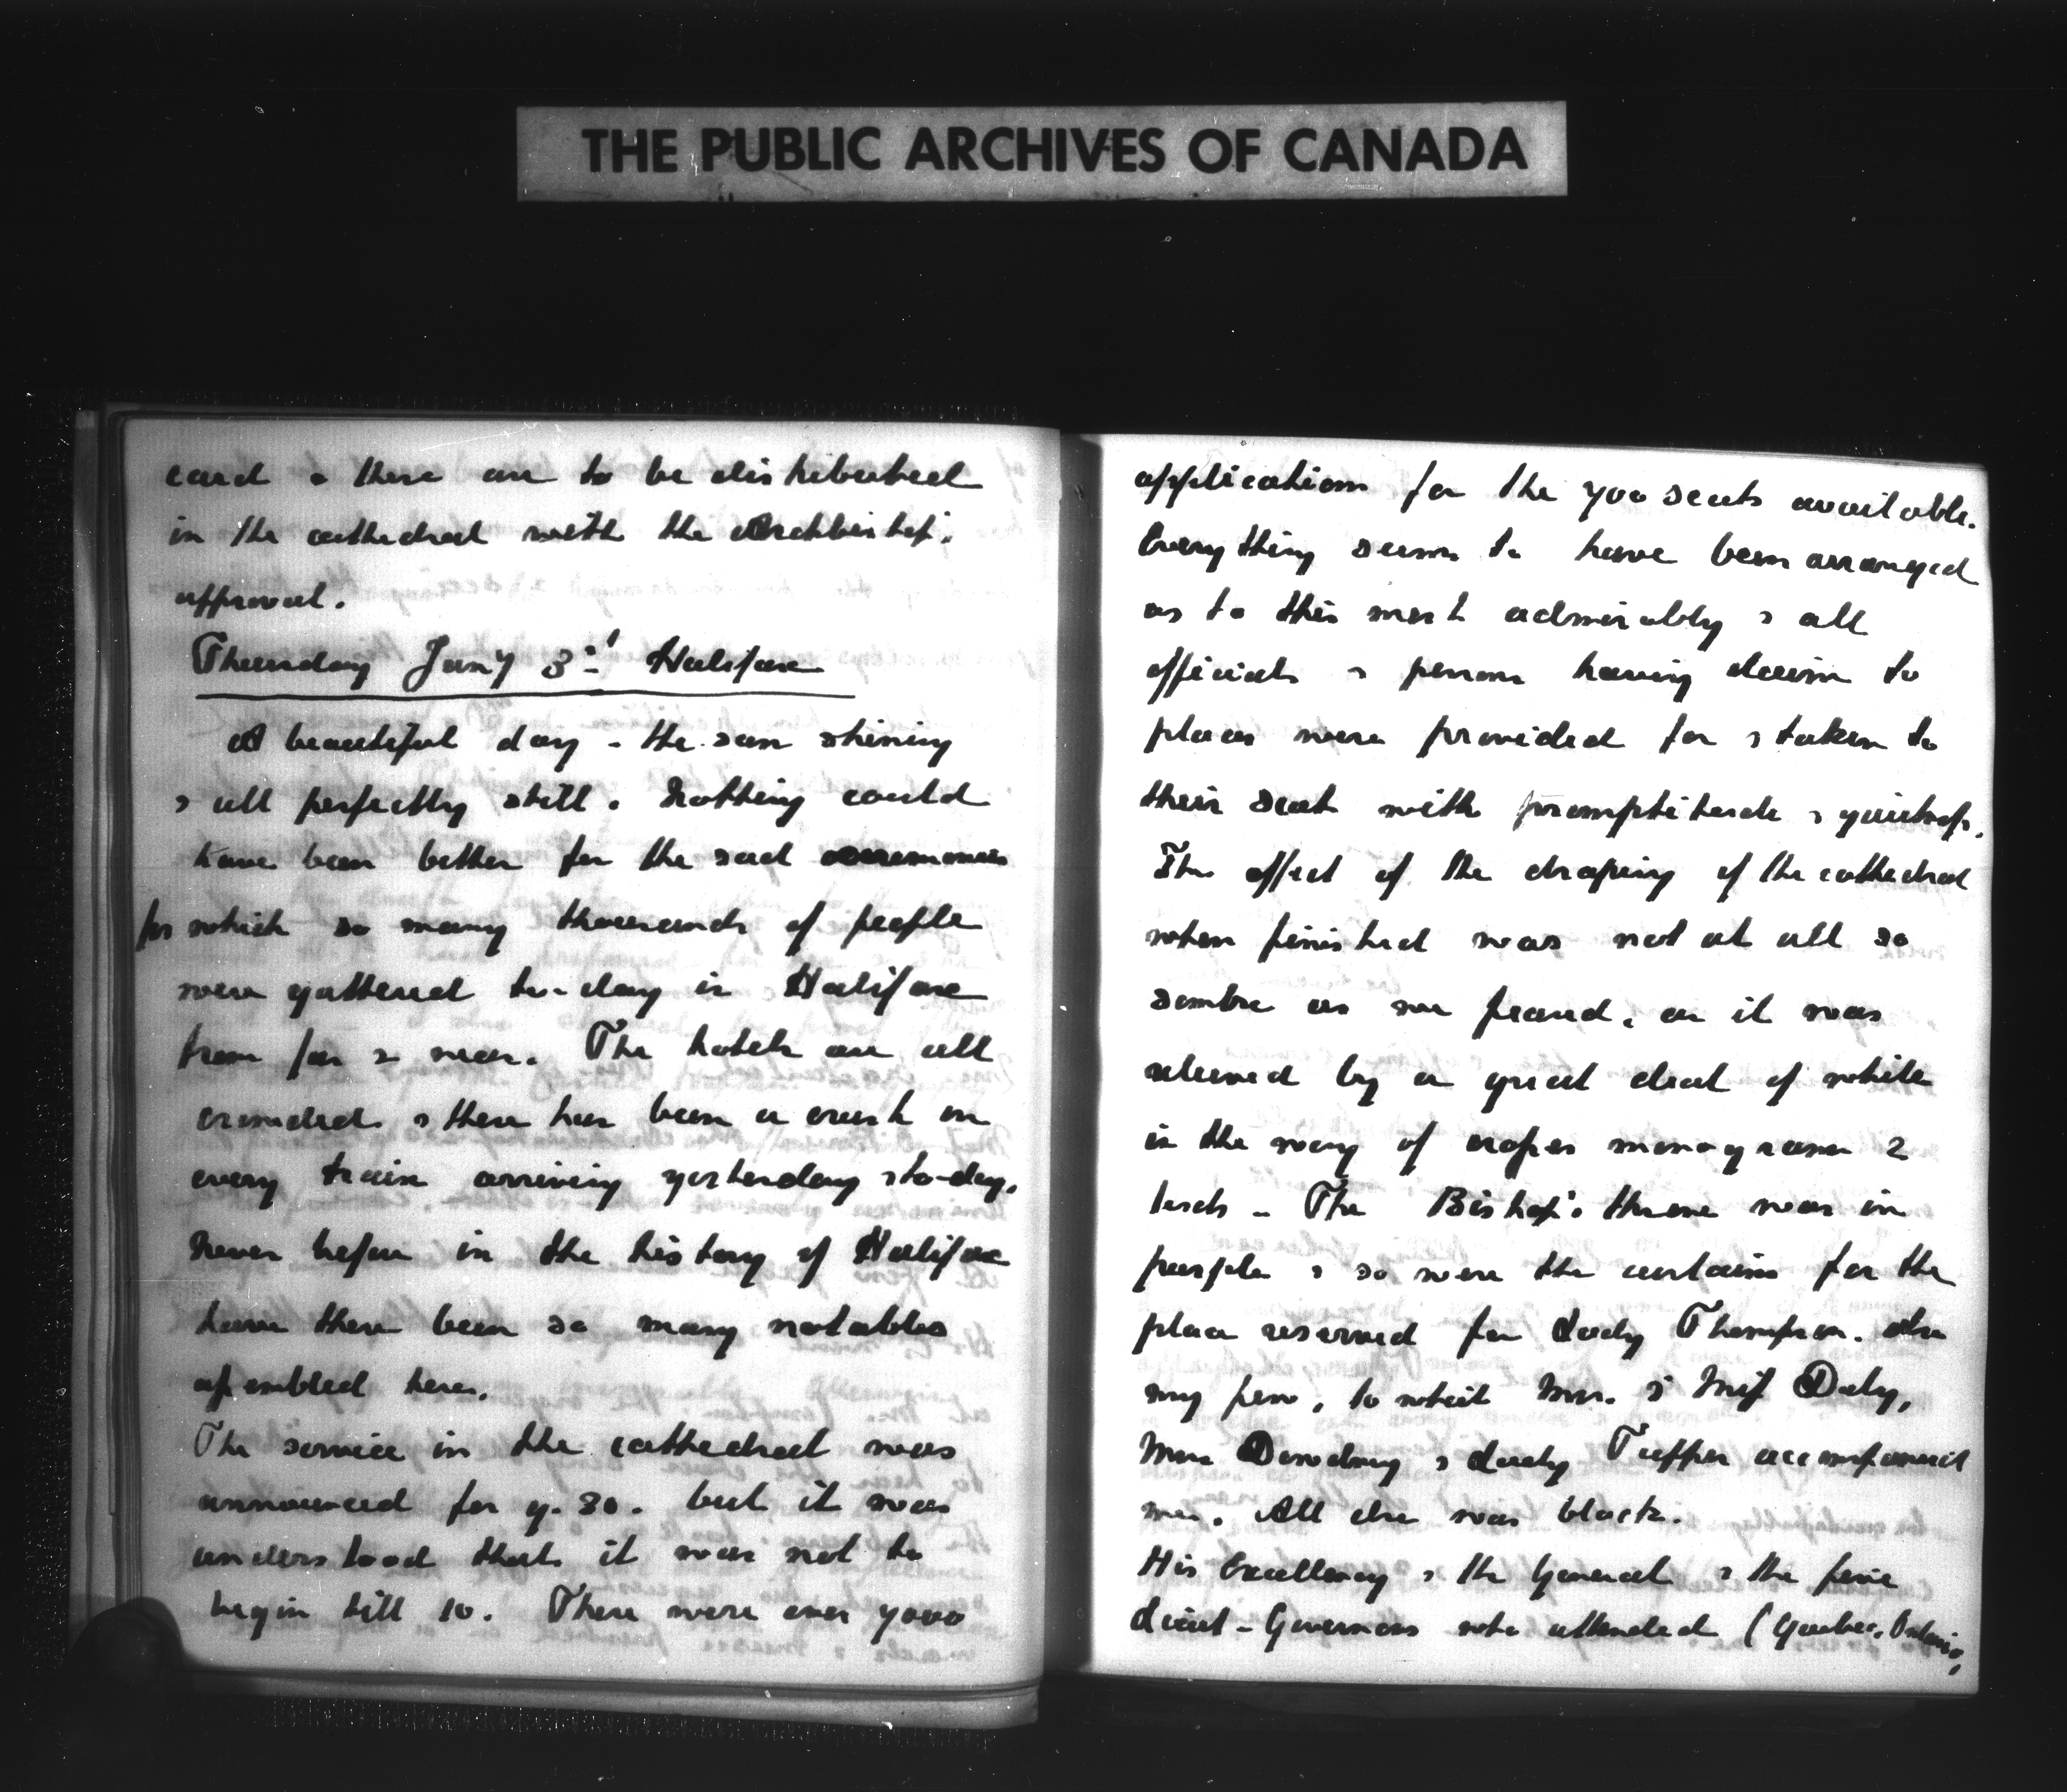 THE PUBLIC ARCHIVES OF CANADA
card & these are to be distributed
in the cathedral with the Archbishop's
approval.
Thursday Jany 3rd Halifax
A beautiful day - the sun shining
& all perfectly still. Nothing could
have been better for the sad ceremonies
for which so many thousands of people
were gathered to-day in Halifax
from far & near. The hotels are all
crowded & there has been a crush on
every train arriving yesterday & to-day.
Never before in the history of Halifax
have there been so many notables
assembled here.
The service in the cathedral was
announced for 9.30. but it was
understood that it was not to
begin till 10. There were over 7000
applications for the 700 seats available.
Everything seems to have been arranged
as to this most admirably & all
officials & persons having claim to
places were provided for & taken to
their seats with promptitude & quietness.
The effect of the draping of the cathedral
when finished was not at all so
sombre as we feared, as it was
relieved by a great deal of white
in the way of crosses monograms &
texts - The Bishop's throne was in
purple & so were the curtains for the
place reserved for Lady Thompson. also
my pew, to which Mrs. & Miss Daly,
Mrs Dewdney & Lady Tupper accompanied
me. All else was black.
His Excellency & the General & the five
Lieut-Governors who attended (Quebec, Ontario,